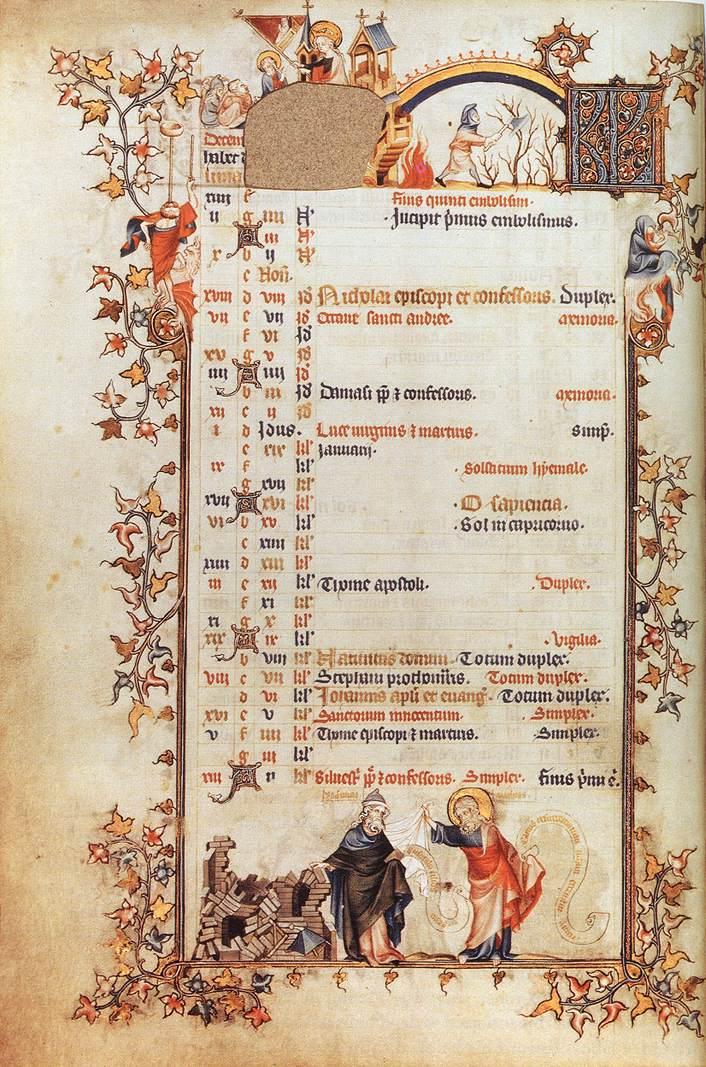 Decem
habet
luna
xiii f finis quinti embolismi.
ii g iiii N Incipit primus embolismus.
A iii N
x b ii N
c Non.
xviii d viii Id Nicholai episcopi et confessoris. Duplex.
vii e vii Id Octave sancti andree. memoria.
f vi Id
xv g v Id
iiii A iiii Id
b iii Id Damasi pp et confessoris. memoria.
xii c ii Id
i d Idus. Lucie virginis et martiris. simp.
e xix kl' Januarii.
ix f kl' Solstitium hyemale.
g xvii kl'
xvii A xvi kl' O sapiencia.
vi b xv. kl' Sol in capricorno.
c xiiii kl'
xiiii d xiii kl'
iii e xii kl' Thome apostoli. Duplex.
f xi kl'
xi g x kl'
xix A ix kl' Vigilia.
b viii kl' Nativitas domini. Totum duplex.
viii c vii kl' Stephani prothomris. Totum duplex.
d vi kl' Johannis apli et euang. Totum duplex.
xvi e v kl' Sanctorum innocentum. Simplex.
v f iiii kl' Thome episcopi et martiris. Simplex.
g iii kl'
xiii A ii kl' Silvest' pp et confessoris. Simplex. finis primi e.